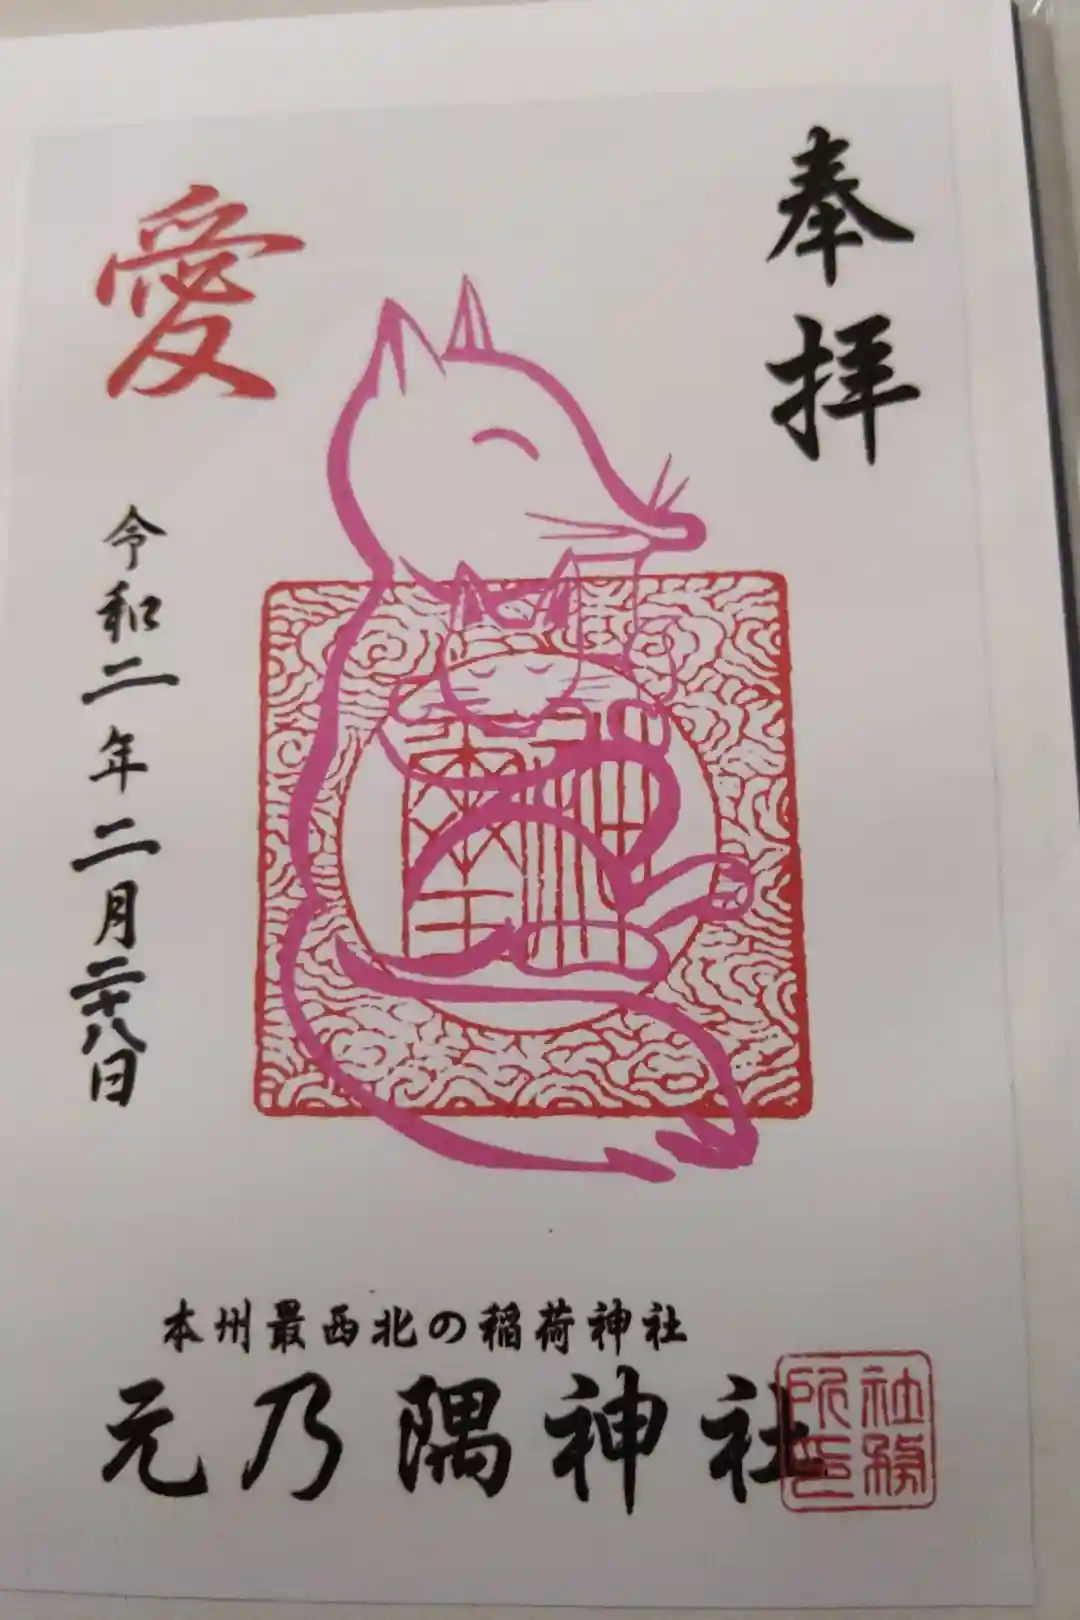 奉拝
愛
令和二年二月二十八日
本州最西北の稲荷神社
元乃隅神社
社務
所印